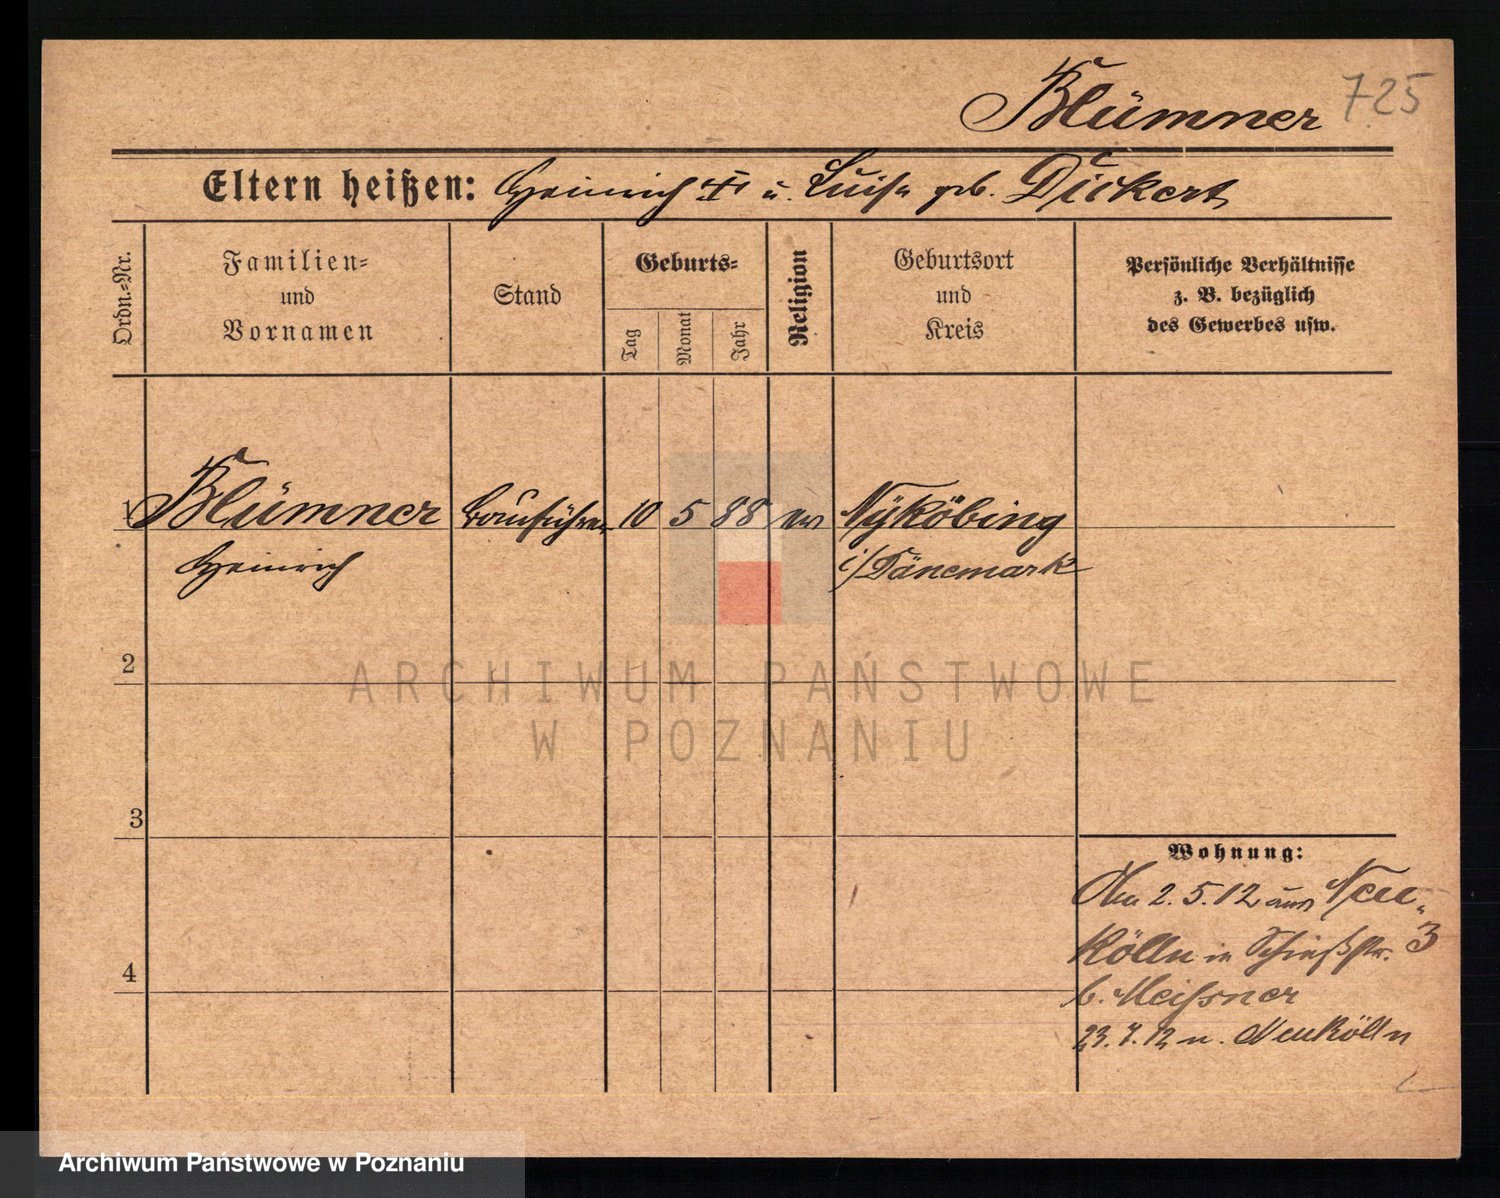 Blümner 725
Eltern heißen: Heinrich † u. Luise geb. Dickert
Ordn.-Nr.
Familien-
und
Vornamen
Stand
Geburts-
Tag
Monat
Jahr
Religion
Geburtsort
und
Kreis
Persönliche Verhältnisse
z. B. bezüglich
des Gewerbes usw.
1 Blümner Bauführer 10 5 88 ev Nyköbing
Heinrich i/Dänemark
2
ARCHIWUM PAŃSTWOWE
W POZNANIU
3
Wohnung:
Am 2.5.12 aus Neu-
Kölln in Schießstr. 3
b. Meißner
4
23.7.12 n. Neukölln
Archiwum Państwowe w Poznaniu